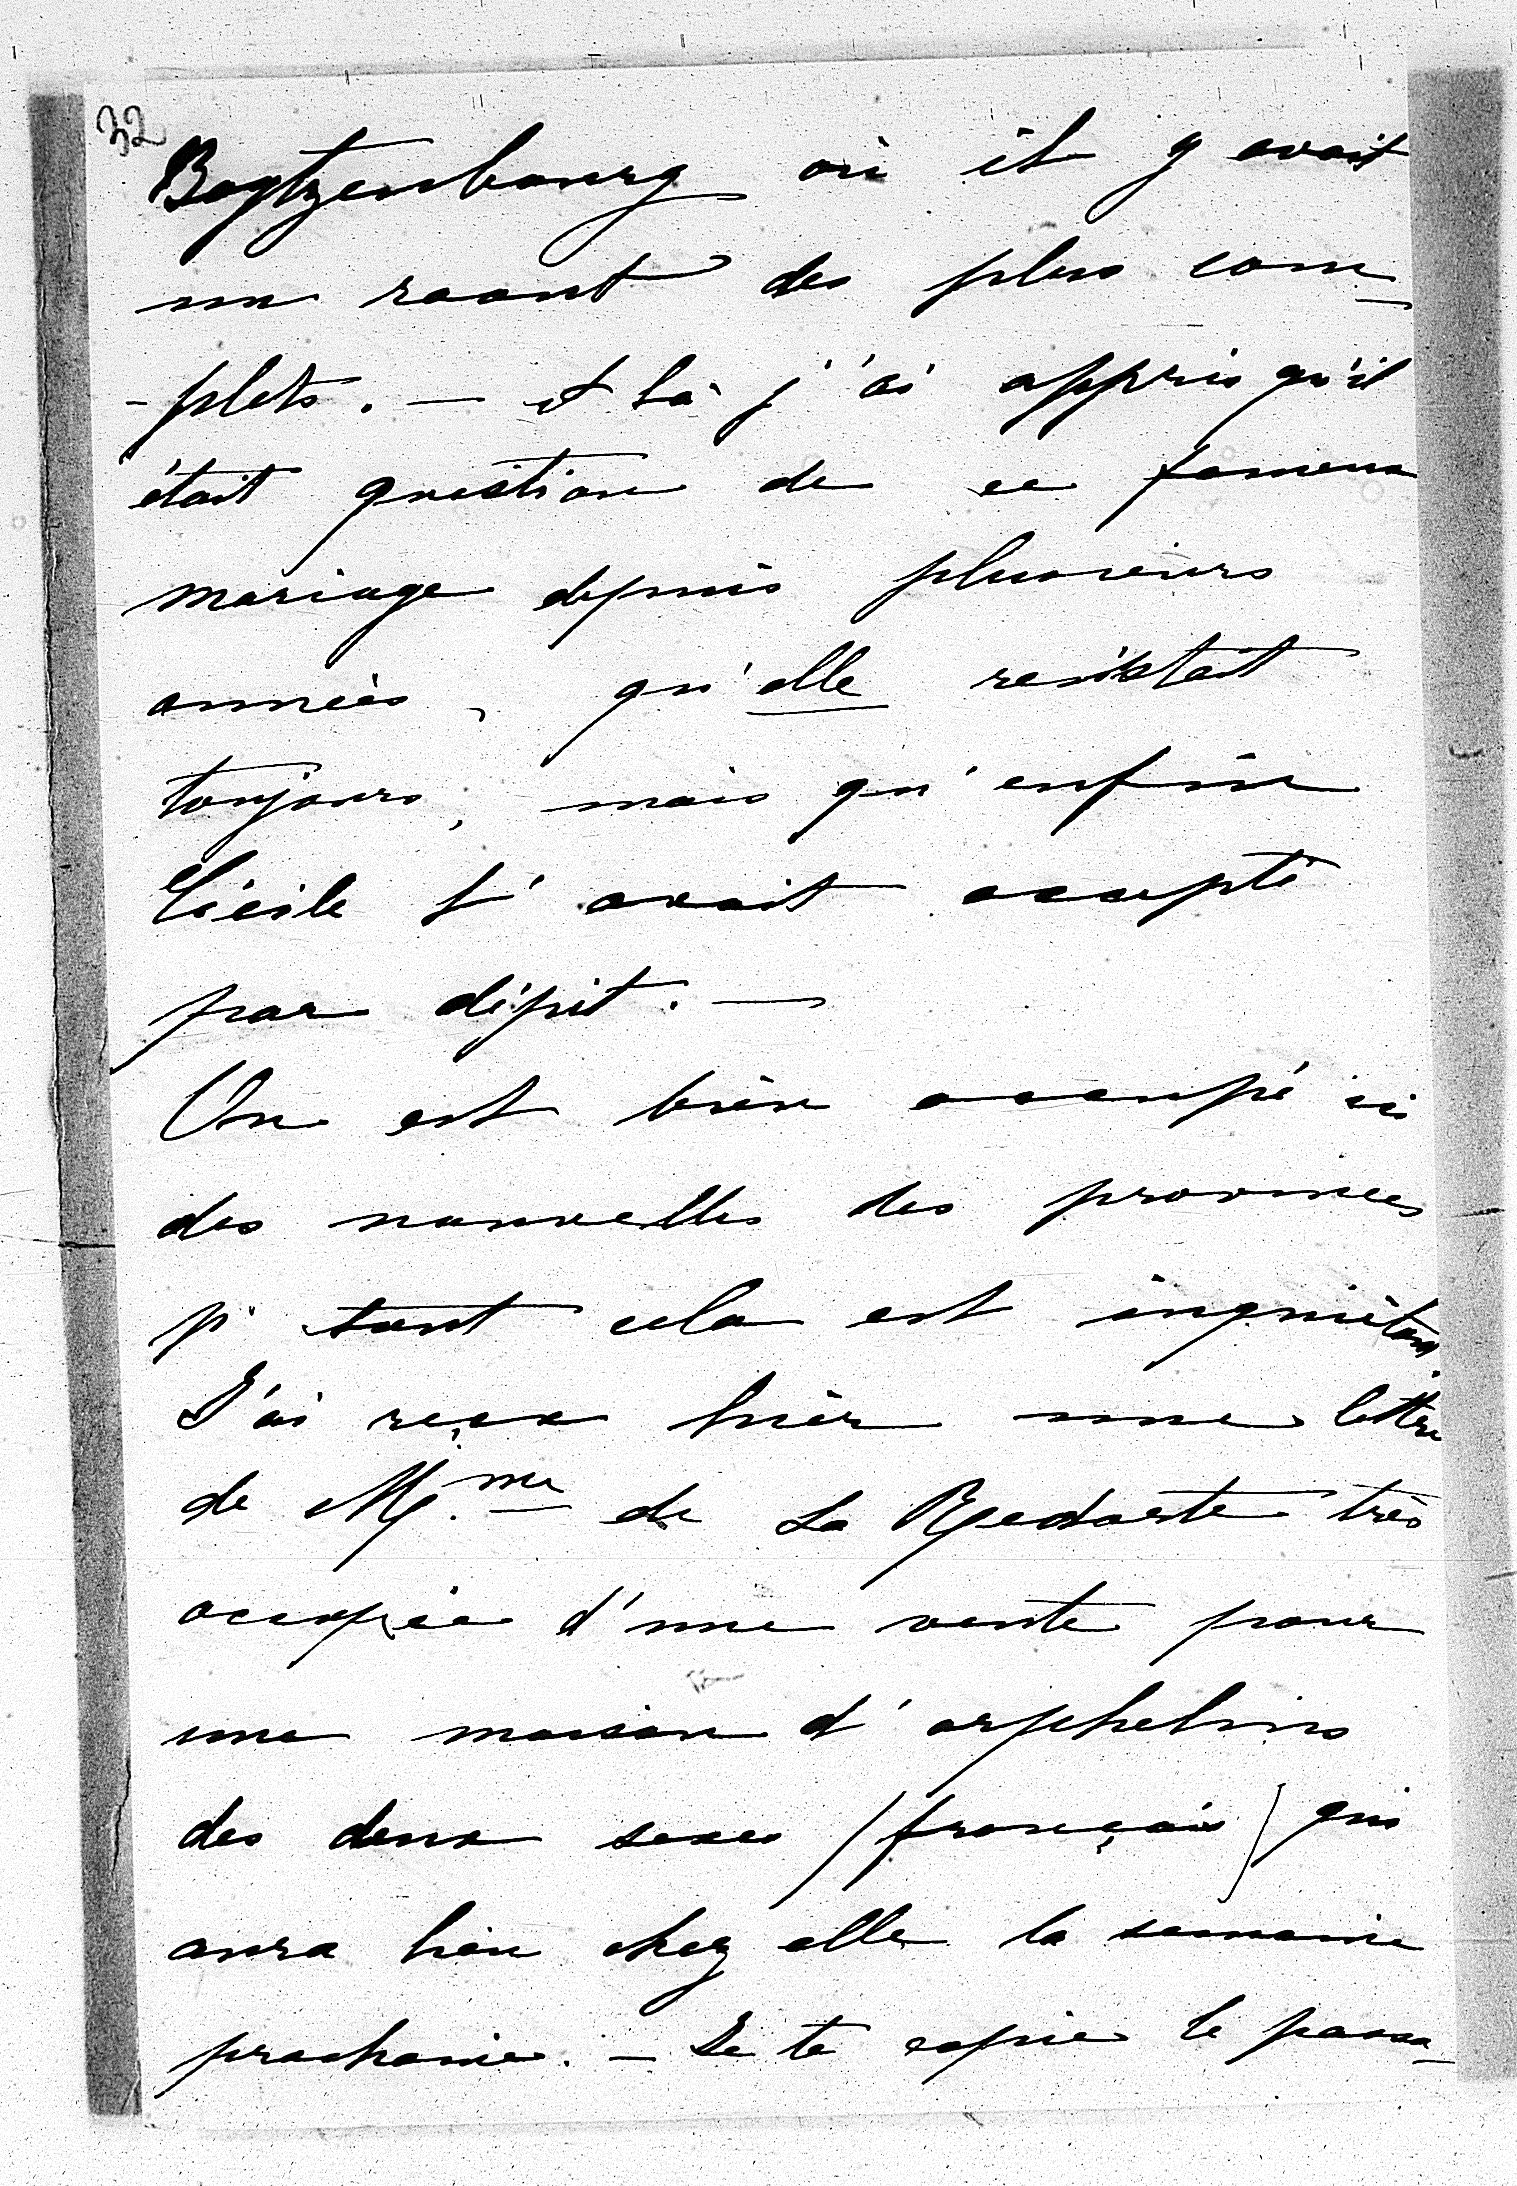 32
Boytzenbourg où il y avait
un raout des plus com-
-plets. — et là j'ai appris qu'il
était question de ce fameux
mariage depuis plusieurs
années, qu'elle resistait
toujours, mais qu'enfin
Cécile l'avait accepté
par dépit. —
On est bien occupé ici
des nouvelles des provinces
p^r tant cela est inquiétant.
J'ai reçu hier une lettre
de M.^me de La Redorte très
occupée d'une vente pour
une maison d'orphelins
des deux sexes (français) qui
aura lieu chez elle la semaine
prochaine. — Je te copie le passa-